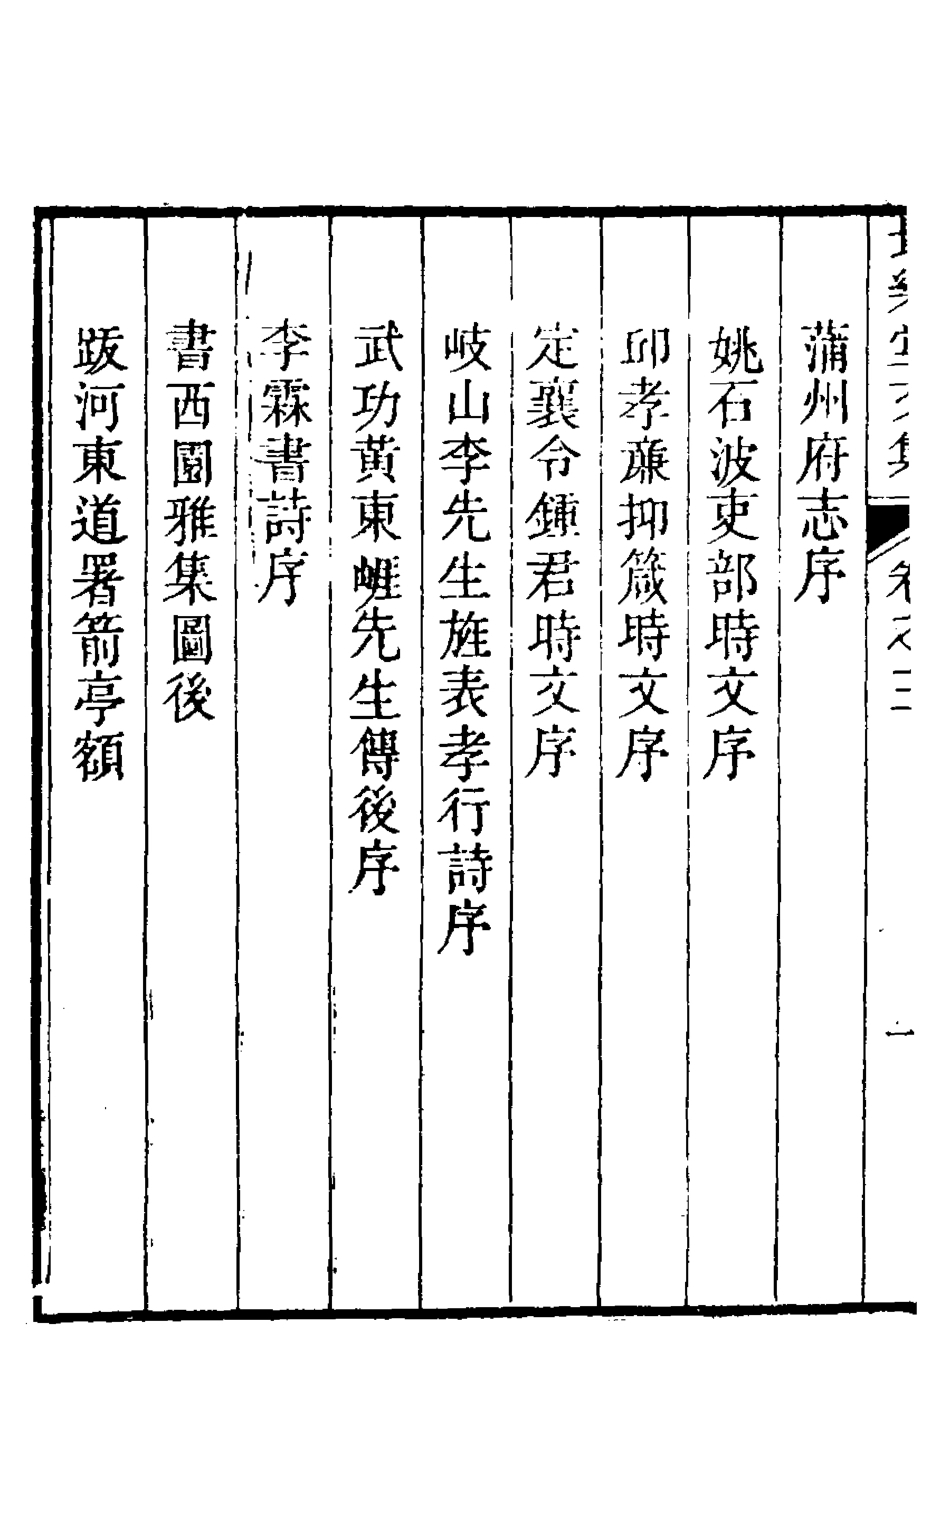 堂文集 卷之三 一
蒲州府志序
姚石波吏部時文序
邱孝亷抑箴時文序
定襄令鍾君時文序
岐山李先生旌表孝行詩序
武功黃東崕先生傳後序
李霖書詩序
書西園雅集圖後
跋河東道署箭亭額